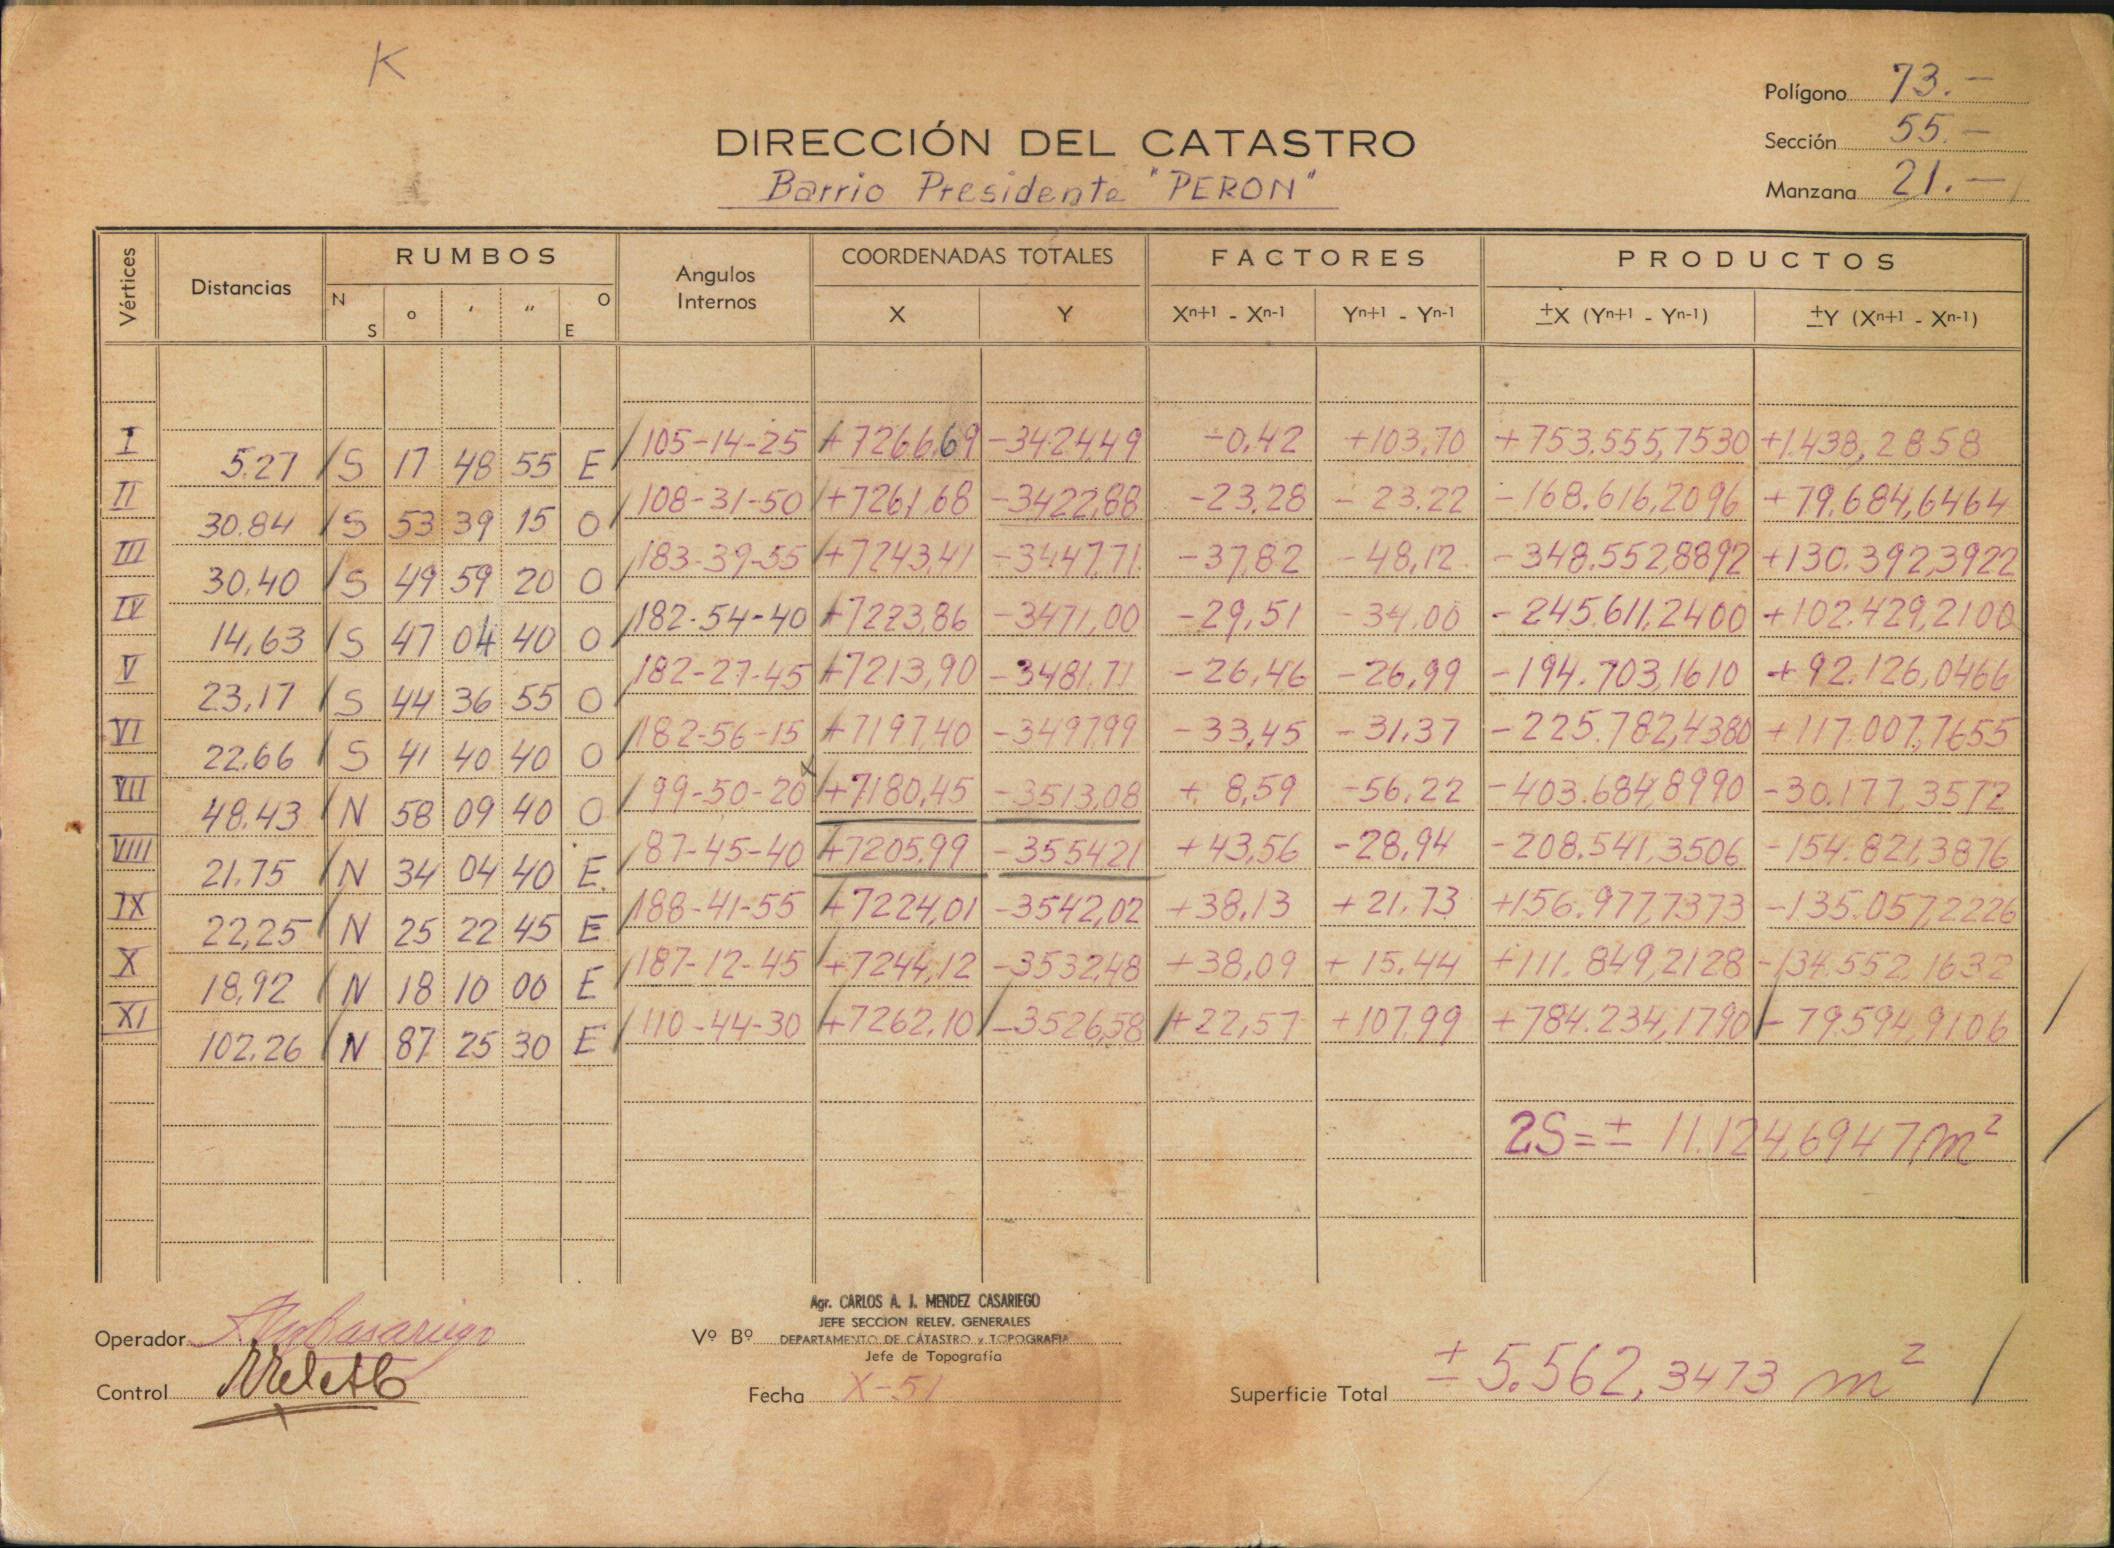 K
Polígono 73.—
DIRECCIÓN DEL CATASTRO
Sección 55.—
Barrio Presidente "PERON"
Manzana 21.—
Vértices Distancias RUMBOS Angulos Internos COORDENADAS TOTALES FACTORES PRODUCTOS
N S ° ' " O E X Y Xn+1 - Xn-1 Yn+1 - Yn-1 ±X (Yn+1 - Yn-1) ±Y (Xn+1 - Xn-1)
I 105-14-25 +7266,69 -3424,49 -0,42 +103,70 +753.555,7530 +1.438,2858
5.27 S 17 48 55 E
II 108-31-50 +7261,68 -3422,88 -23,28 -23.22 -168.616,2096 +79.684,6464
30.84 S 53 39 15 O
III 183-39-55 +7243,41 -3447,71 -37,82 -48,12 -348.552,8892 +130.392,3922
30.40 S 49 59 20 O
IV 182-54-40 +7223,86 -3471,00 -29,51 -34,00 -245.611,2400 +102.429,2100
14,63 S 47 04 40 O
V 182-27-45 +7213,90 -3481,71 -26,46 -26,99 -194.703,1610 +92.126,0466
23,17 S 44 36 55 O
VI 182-56-15 +7197,40 -3497,99 -33,45 -31,37 -225.782,4380 +117.007,7655
22.66 S 41 40 40 O
VII 99-50-20 +7180,45 -3513,08 +8,59 -56,22 -403.684,8990 -30.177,3572
48.43 N 58 09 40 O
VIII 87-45-40 +7205,99 -3554,21 +43,56 -28,94 -208.541,3506 -154.821,3876
21.75 N 34 04 40 E.
IX 188-41-55 +7224,01 -3542,02 +38,13 +21,73 +156.977,7373 -135.057,2226
22,25 N 25 22 45 E
X 187-12-45 +7244,12 -3532,48 +38,09 +15,44 +111.849,2128 -134.552,1632
18,92 N 18 10 00 E
XI 110-44-30 +7262,10 -3526,58 +22,57 +107,99 +784.234,1790 -79.594,9106
102.26 N 87 25 30 E
2S = ± 11.124,6947 m²
Agr. CARLOS A. J. MENDEZ CASARIEGO
JEFE SECCION RELEV. GENERALES
Operador Vº Bº DEPARTAMENTO DE CATASTRO y TOPOGRAFIA
Jefe de Topografía
Control Fecha X-51 Superficie Total ± 5.562,3473 m²